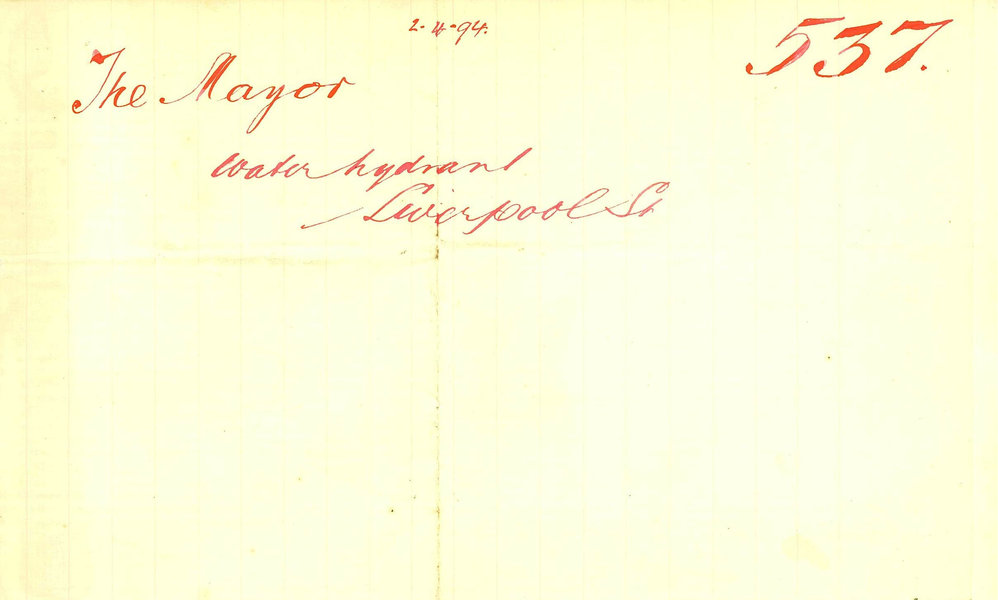 2-4-94.
537.
The Mayor
Water hydrant
Liverpool St